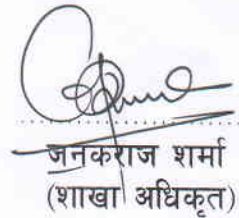 जनकराज शर्मा
(शाखा अधिकृत)